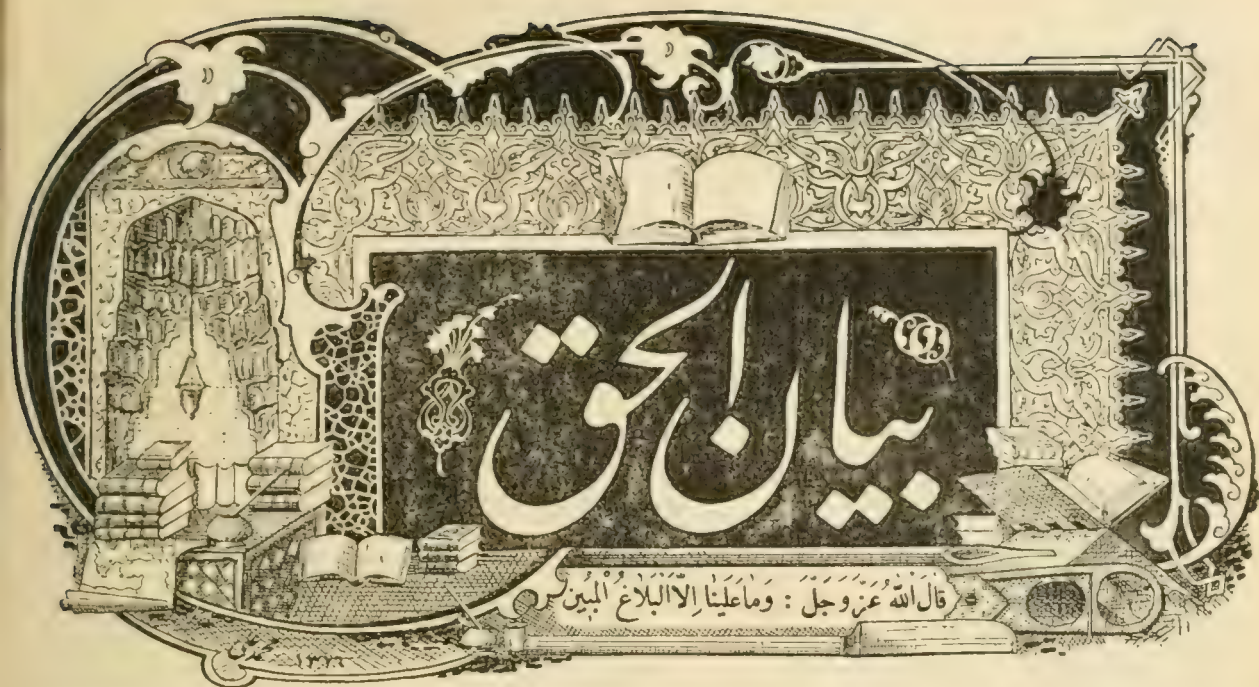 بيان الحق
قَالَ اللهُ عَزَّ وَجَلَّ : وَمَا عَلَيْنَا إِلَّا الْبَلَاغُ الْمُبِين
١٣٢٦